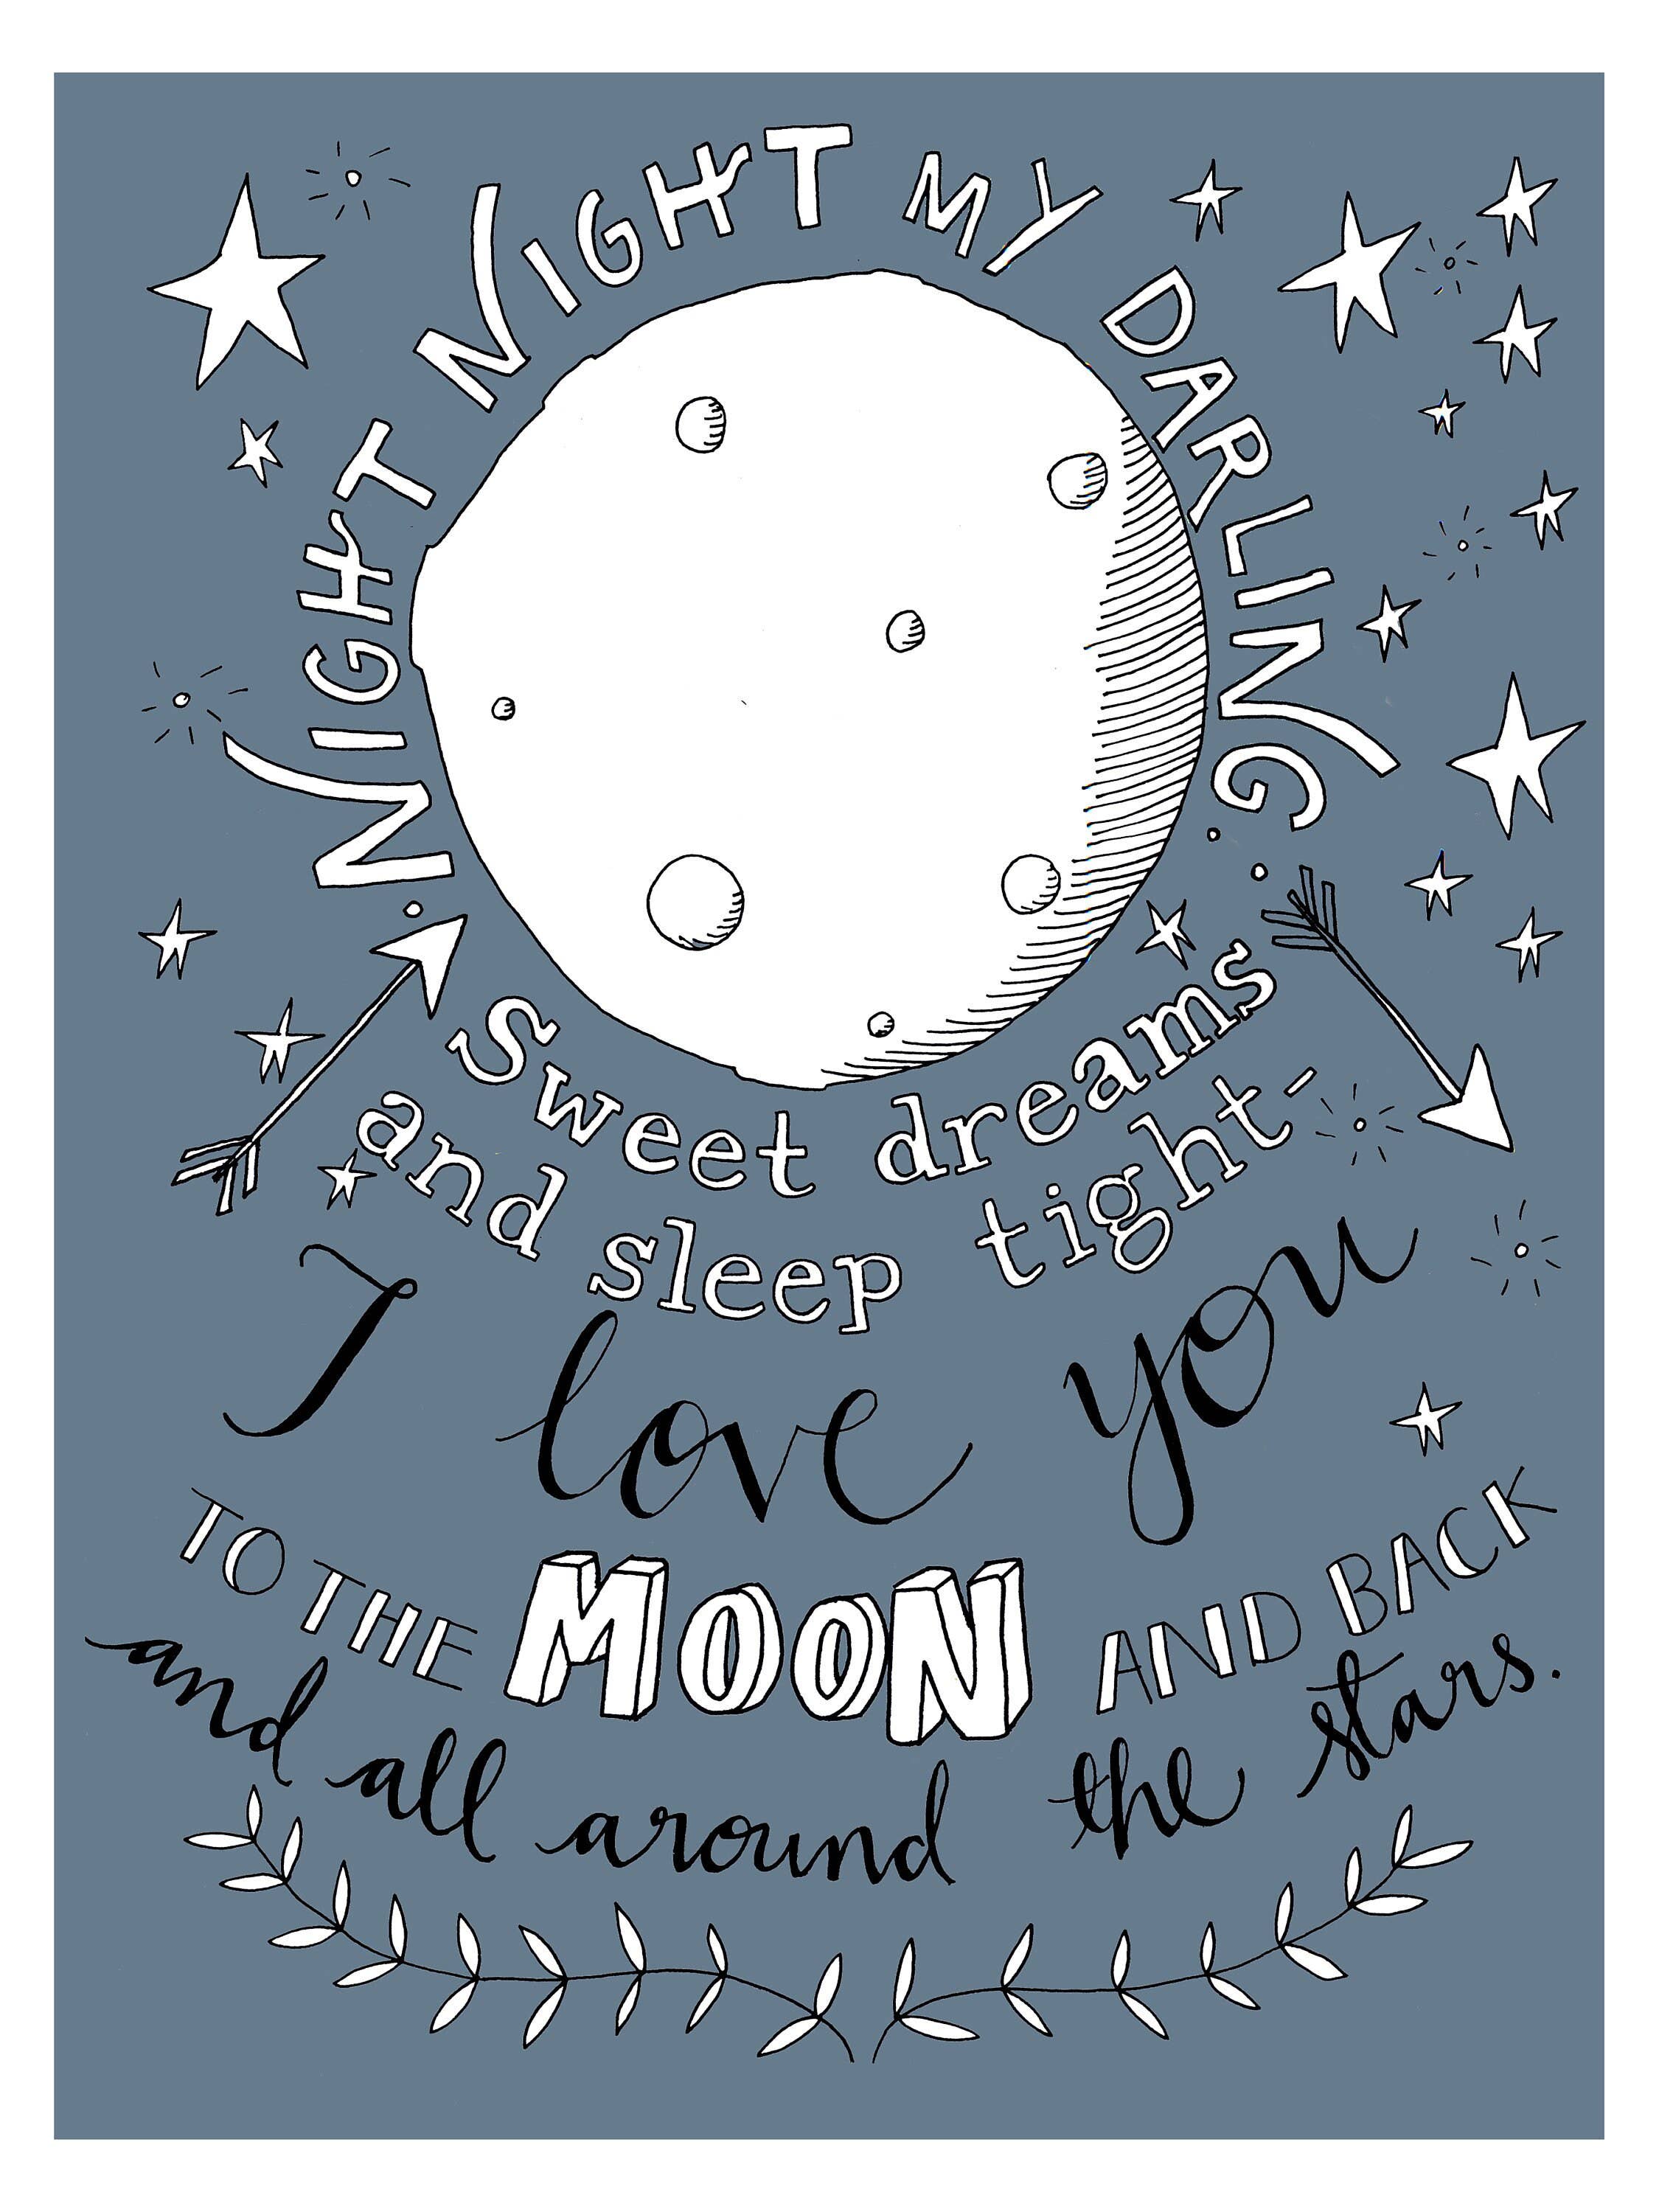 NIGHT NIGHT MY DARLING
Sweet dreams
and sleep tight-
I love you
TO THE MOON AND BACK
and all around the stars.